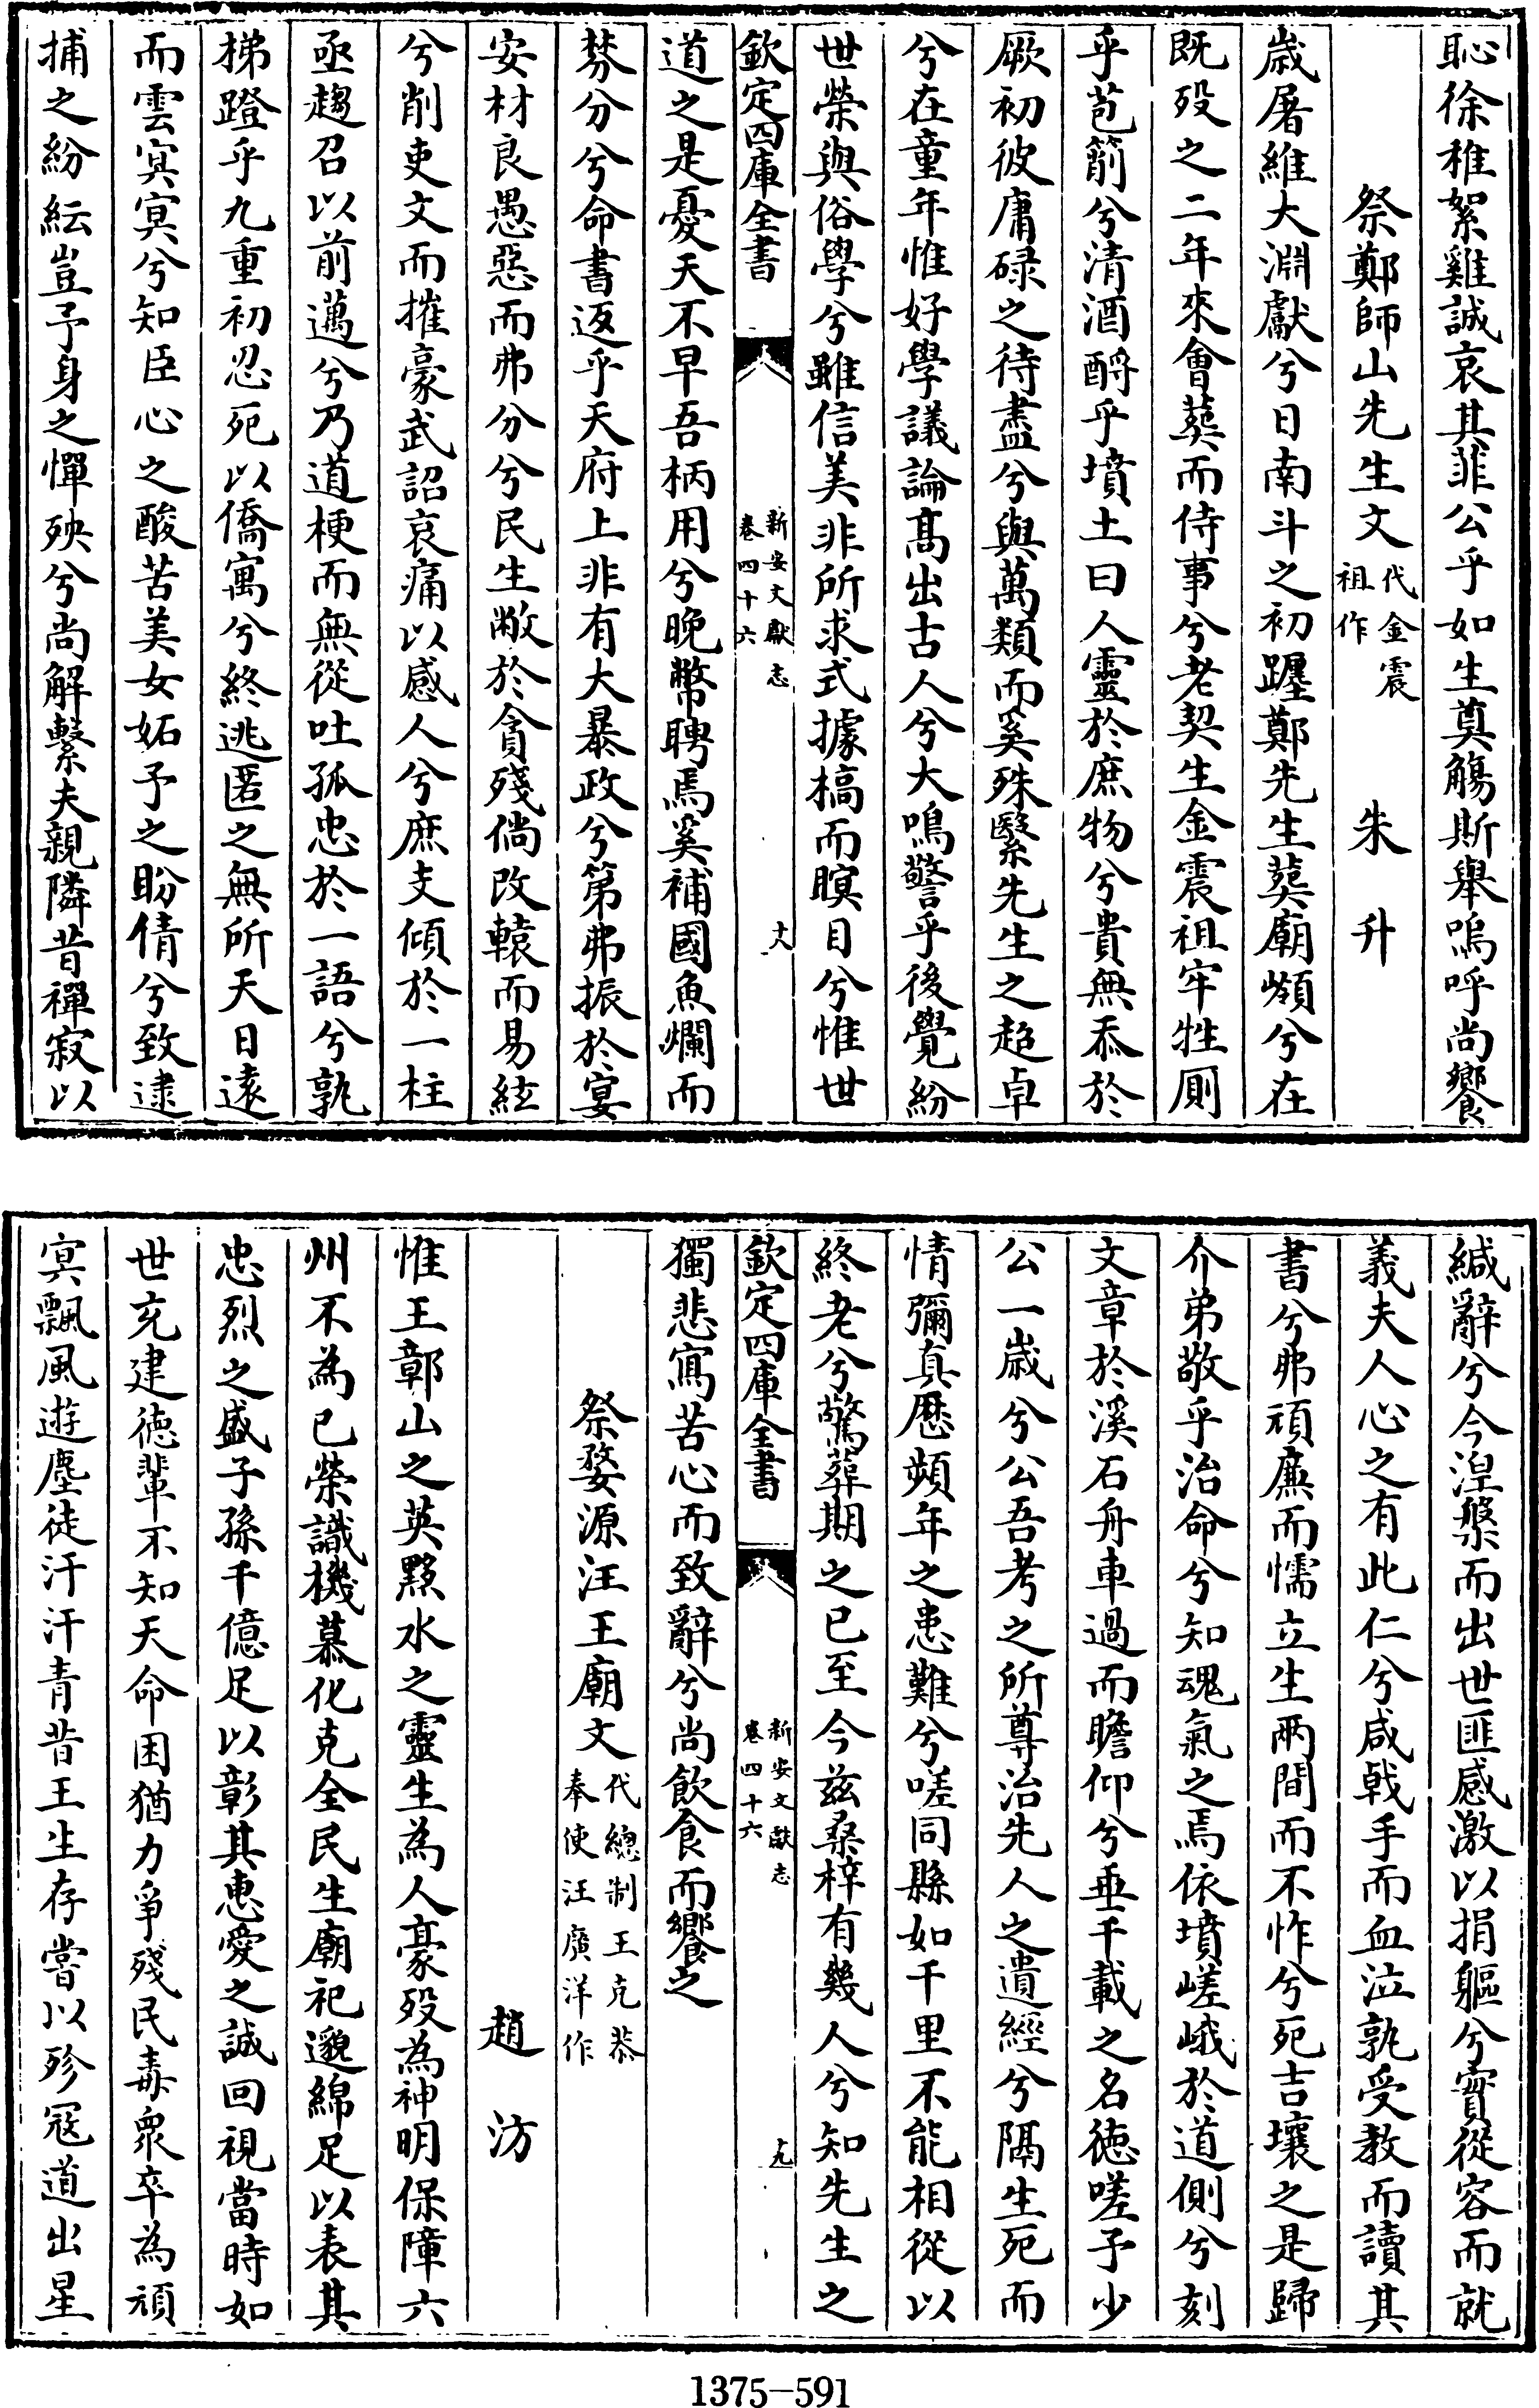 恥徐稚絮雞誠哀其菲公乎如生奠觴斯舉嗚呼尚饗
祭鄭師山先生文代金震祖作 朱升
歳屠維大淵獻兮日南斗之初躔鄭先生葬廟嶺兮在
既歿之二年來會葬而侍事兮老契生金震祖牢牲厠
乎苞筲兮清酒酹乎墳土曰人靈於庶物兮貴無忝於
厥初彼庸碌之待盡兮與萬類而奚殊緊先生之超卓
兮在童年惟好學議論髙出古人兮大鳴警乎後覺紛
世榮與俗學兮雖信美非所求式據槁而瞑目兮惟世
欽定四庫全書
新安文獻志
卷四十六
十八
道之是憂天不早吾柄用兮晩幣聘焉奚補國魚爛而
棼分兮命書返乎天府上非有大暴政兮第弗振於宴
安材良愚惡而弗分兮民生敝於貪殘倘改轅而易絃
兮削吏文而摧豪武詔哀痛以感人兮庶支傾於一柱
亟趨召以前邁兮乃道梗而無從吐孤忠於一語兮孰
梯蹬乎九重初忍死以僑寓兮終逃匿之無所天日逺
而雲㝠㝠兮知臣心之酸苦美女妬予之盼倩兮致逮
捕之紛紜豈予身之憚殃兮尚解繫夫親隣昔禪寂以
緘辭兮今湼槃而出世匪感激以捐軀兮實從容而就
義夫人心之有此仁兮咸戟手而血泣孰受教而讀其
書兮弗頑廉而懦立生兩間而不怍兮死吉壤之是歸
介弟敬乎治命兮知魂氣之焉依墳嵯峨於道側兮刻
文章於溪石舟車過而瞻仰兮垂千載之名徳嗟予少
公一歳兮公吾考之所尊治先人之遺經兮隔生死而
情彌真歴頻年之患難兮嗟同縣如千里不能相從以
終老兮驚葬期之已至今兹桑梓有幾人兮知先生之
欽定四庫全書
新安文獻志
卷四十六
十九
獨悲寫苦心而致辭兮尚飲食而饗之
祭婺源汪王廟文代總制王克恭奉使汪廣洋作
趙汸
惟王鄣山之英黟水之靈生為人豪歿為神明保障六
州不為已榮識機慕化克全民生廟祀邈綿足以表其
忠烈之盛子孫千億足以彰其恵愛之誠回視當時如
世充建徳輩不知天命困猶力爭殘民毒衆卒為頑
㝠飄風逰塵徒汗汗青昔王生存嘗以殄冦道出星
1375-591